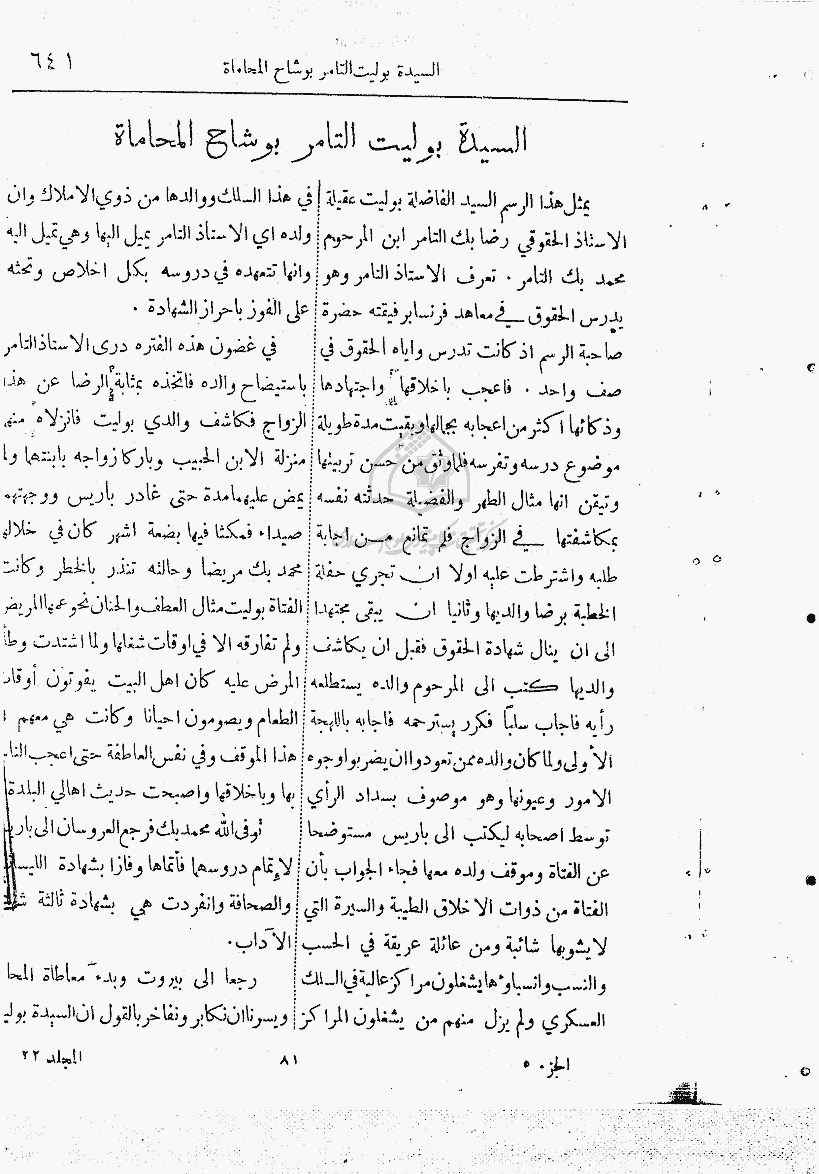 السيدة بوليت التامر بوشاح المحاماة
٦٤١
السيدة بوليت التامر بوشاح المحاماة
يمثل هذا الرسم السيد الفاضلة بوليت عقيلة
الاستاذ الحقوقي رضا بك التامر ابن المرحوم
محمد بك التامر . تعرف الاستاذ التامر وهو
يدرس الحقوق في معاهد فرنسا برفيقته حضرة
صاحبة الرسم اذ كانت تدرس واياه الحقوق في
صف واحد . فاعجب باخلاقها واجتهادها
وذكائها اكثر من اعجابه بجمالها وبقيت مدة طويلة
موضوع درسه وتفرسه فلما وثق من حسن تربيتها
وتيقن انها مثال الطهر والفضيلة حدثته نفسه
بمكاشفتها في الزواج فلم تمانع من اجابة
طلبه واشترطت عليه اولا ان تجري حفلة
الخطبة برضا والديها وثانيا ان يبقى مجتهدا
الى ان ينال شهادة الحقوق فقبل ان يكاشف
والديها كتب الى المرحوم والده يستطلعه
رأيه فاجاب سلبا فكرر يسترحمه فاجابه باللهجة
الأولى ولما كان والده ممن تعودوا ان يضربوا وجوه
الامور وعيونها وهو موصوف بسداد الرأي
توسط اصحابه ليكتب الى باريس مستوضحا
عن الفتاة وموقف ولده معها فجاء الجواب بأن
الفتاة من ذوات الاخلاق الطيبة والسيرة التي
لا يشوبها شائبة ومن عائلة عريقة في الحسب
والنسب وانسباؤها يشغلون مراكز عالية في السلك
العسكري ولم يزل منهم من يشغلون المراكز
في هذا السلك ووالدها من ذوي الاملاك وان
ولده اي الاستاذ التامر يميل اليها وهي تميل اليه
وانها تتعهده في دروسه بكل اخلاص وتحثه
على الفوز باحراز الشهادة .
في غضون هذه الفتره درى الاستاذ التامر
باستيضاح والده فاتخذه بمثابة الرضا عن هذا
الزواج فكاشف والدي بوليت فانزلاه منهـ
منزلة الابن الحبيب وباركا زواجه بابنتهما ولم
يمض عليهما مدة حتى غادر باريس ووجهتهم
صيداء فمكثا فيها بضعة اشهر كان في خلالها
محمد بك مريضا وحالته تنذر بالخطر وكانت
الفتاة بوليت مثال العطف والحنان نحو عمها المريض
ولم تفارقه الا في اوقات شغلها ولما اشتدت وطأ
المرض عليه كان اهل البيت يفوتون أوقات
الطعام ويصومون احيانا وكانت هي معهم ا
هذا الموقف وفي نفس العاطفة حتى اعجب النا
بها وباخلاقها واصبحت حديث اهالي البلدة
توفى الله محمد بك فرجع العروسان الى باريـ
لإتمام دروسهما فأتماها وفازا بشهادة الليسا
والصحافة وانفردت هي بشهادة ثالثة
الآداب .
رجعا الى بيروت وبدء معاطاة المحا
ويسرنا ان نكابر ونفاخر بالقول ان السيدة بوليت
الجزء ٥
٨١
المجلد ٢٢